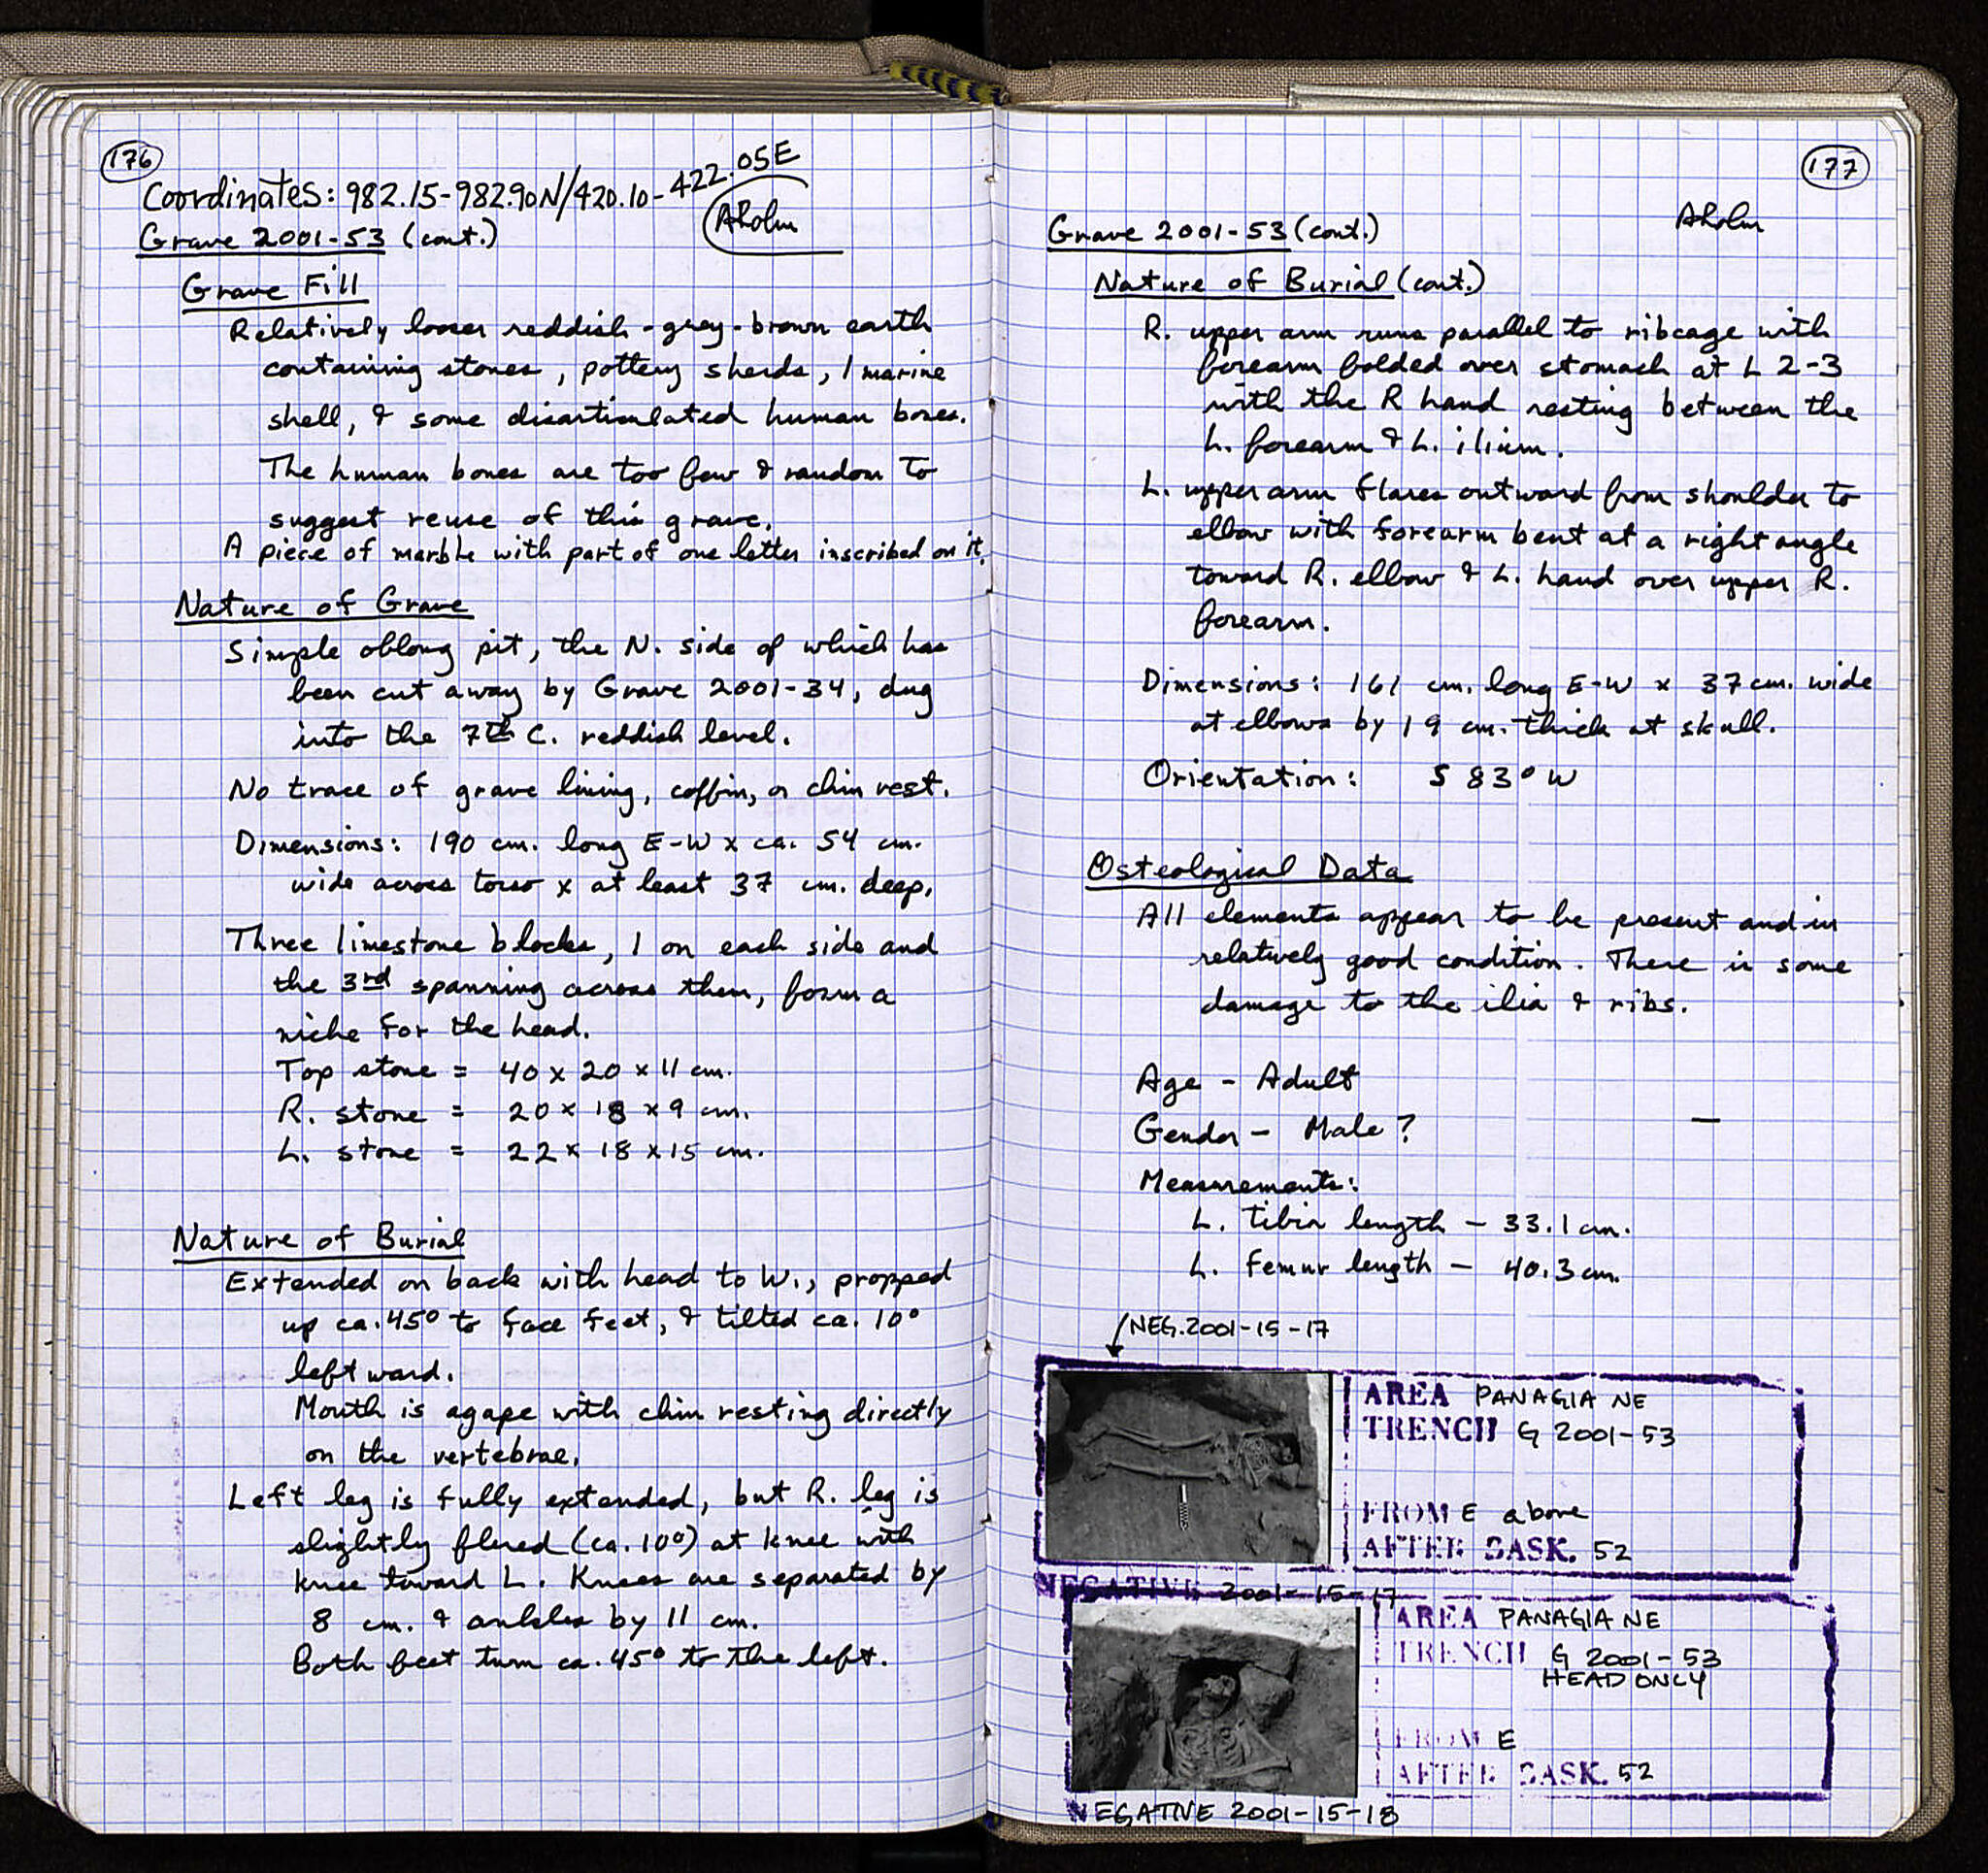 176
Coordinates: 982.15-982.90N/420.10-422.05E
ARohn
Grave 2001-53 (cont.)
Grave Fill
Relatively looser reddish-grey-brown earth
containing stones, pottery sherds, 1 marine
shell, & some disarticulated human bones.
The human bones are too few & random to
suggest reuse of this grave.
A piece of marble with part of one letter inscribed on it.
Nature of Grave
Simple oblong pit, the N. side of which has
been cut away by Grave 2001-34, dug
into the 7th C. reddish level.
No trace of grave lining, coffin, or chin rest.
Dimensions: 190 cm. long E-W x ca. 54 cm.
wide across torso x at least 37 cm. deep.
Three limestone blocks, 1 on each side and
the 3rd spanning across them, form a
niche for the head.
Top stone = 40 x 20 x 11 cm.
R. stone = 20 x 18 x 9 cm.
L. stone = 22 x 18 x 15 cm.
Nature of Burial
Extended on back with head to W., propped
up ca. 45° to face feet, & tilted ca. 10°
leftward.
Mouth is agape with chin resting directly
on the vertebrae.
Left leg is fully extended, but R. leg is
slightly flered (ca. 10°) at knee with
knee toward L. Knees are separated by
8 cm. & ankles by 11 cm.
Both feet turn ca. 45° to the left.
177
ARohn
Grave 2001-53 (cont.)
Nature of Burial (cont.)
R. upper arm runs parallel to ribcage with
forearm folded over stomach at L 2-3
with the R hand resting between the
L. forearm & L. ilium.
L. upper arm flares outward from shoulder to
elbow with forearm bent at a right angle
toward R. elbow & L. hand over upper R.
forearm.
Dimensions: 161 cm. long E-W x 37 cm. wide
at elbows by 19 cm. thick at skull.
Orientation: S 83° W
Osteological Data
All elements appear to be present and in
relatively good condition. There is some
damage to the ilia & ribs.
Age - Adult
Gender - Male? —
Measurements:
L. Tibia length - 33.1 cm.
L. Femur length - 40.3 cm.
NEG. 2001-15-17
AREA PANAGIA NE
TRENCH G 2001-53
FROM E above
AFTER BASK. 52
NEGATIVE 2001-15-17
AREA PANAGIA NE
TRENCH G 2001-53
HEAD ONLY
FROM E
AFTER BASK. 52
NEGATIVE 2001-15-18